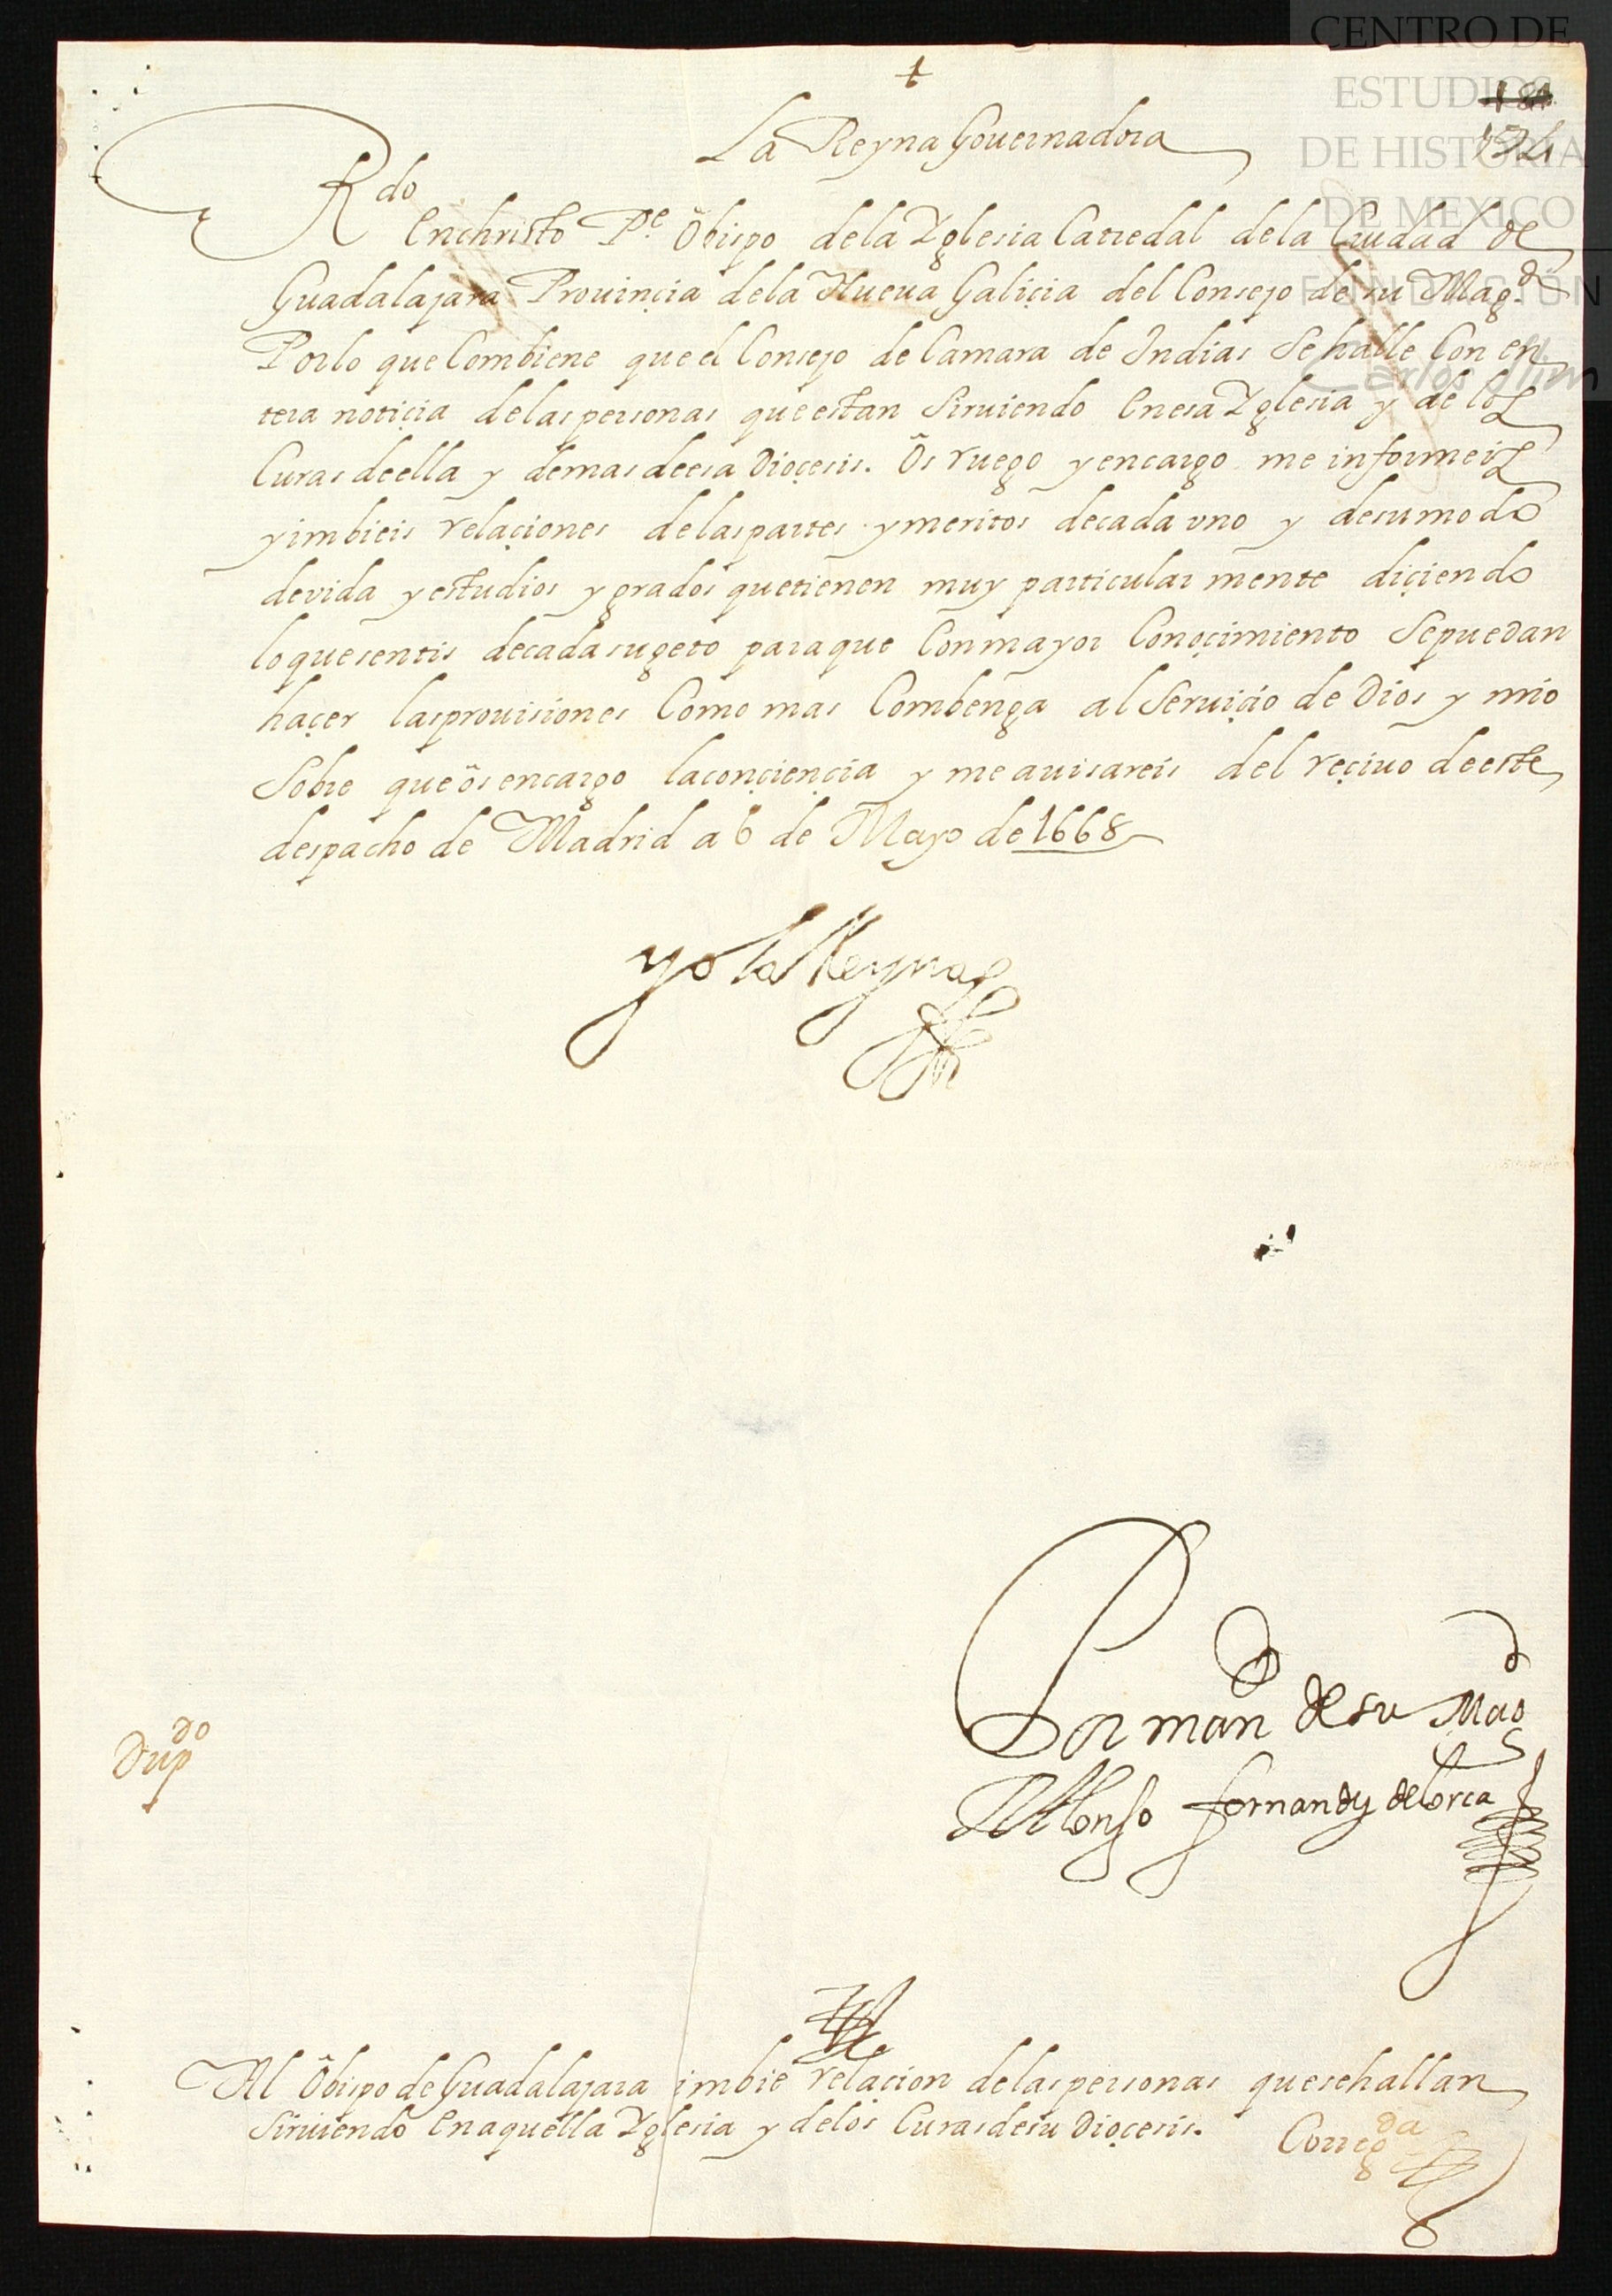 CENTRO DE
ESTUDIOS
DE HISTORIA
DE MEXICO
FUNDACIÓN
Carlos Slim
La Reyna Gouernadora
Rdo
Enchristo Pe Obispo dela Yglesia Catredal dela Ciudad de
Guadalajara Prouinçia dela Nueua Galiçia del Consejo de su Magd
Porlo que Combiene que el Consejo de Camara de Indias se halle Con en
tera notiçia delas personas que estan siruiendo Enesa Yglesia y de los
Curas deella y demas deesa Dioçesis. Os ruego y encargo me informeis
y imbieis relaçiones delas partes y meritos decada vno y desumodo
devida y estudios y grados quetienen muy particular mente diçiendo
loquesentis decada sugeto paraque Conmayor Conoçimiento Sepuedan
haçer lasprouisiones Como mas Combenga al Seruiçio de Dios y mio
Sobre queos encargo laconçiençia y me auisareis del reçiuo deeste
despacho de Madrid a 6 de Mayo de 1668
yo la Reyna
Por man de su Magd
Alonso fernandez de lorca
Dupdo
Al Obispo de Guadalajara imbie relacion delas personas quesehallan
Siruiendo Enaquella Yglesia y delos Curas desu Dioçesis.
Corregda